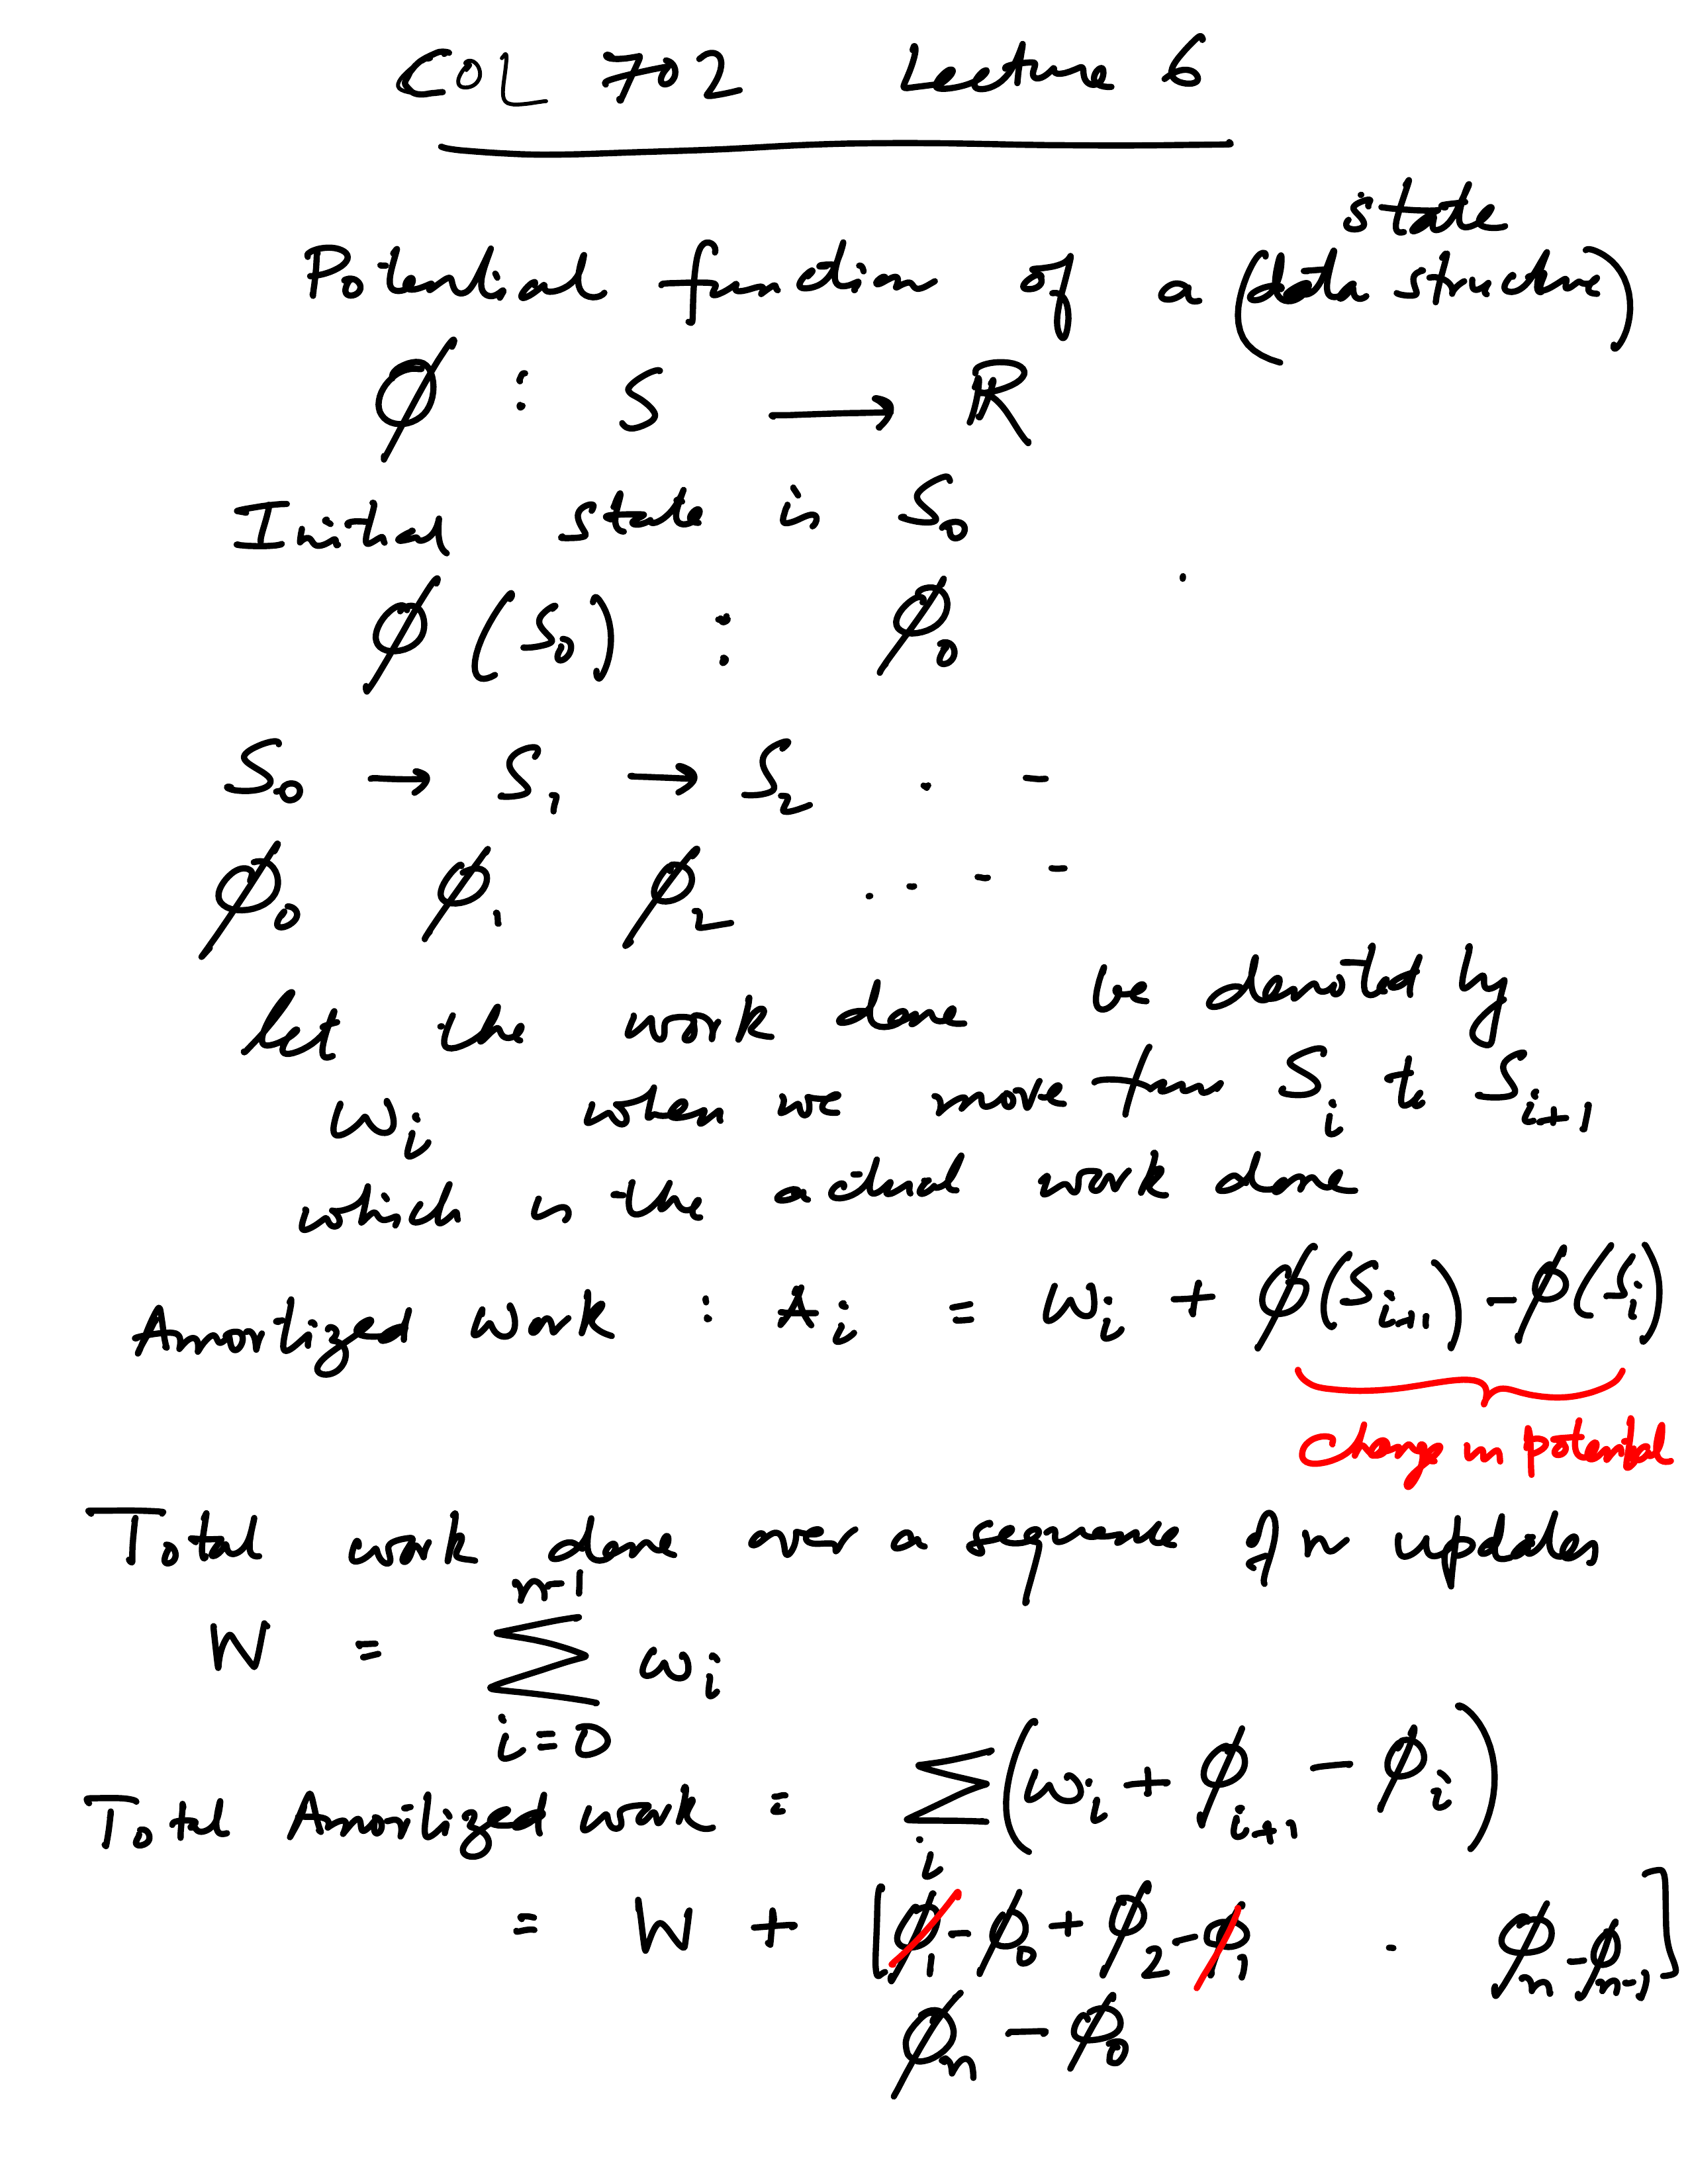 COL 702 Lecture 6
state
Potential function of a (data structure)
ϕ : S → ℝ
Initial state is S₀
ϕ(S₀) : ϕ₀
S₀ → S₁ → S₂ . -
ϕ₀ ϕ₁ ϕ₂ . . - -
let the work done be denoted by
wᵢ when we move from Sᵢ to Sᵢ₊₁
which is the actual work done
Amortized work : Aᵢ = wᵢ + ϕ(Sᵢ₊₁) - ϕ(Sᵢ)
change in potential
Total work done over a sequence of n updates
W = ∑_{i=0}^{n-1} wᵢ
Total Amortized work = ∑_i (wᵢ + ϕᵢ₊₁ - ϕᵢ)
= W + [ϕ₁ - ϕ₀ + ϕ₂ - ϕ₁ . ϕₙ - ϕₙ₋₁]
ϕₙ - ϕ₀